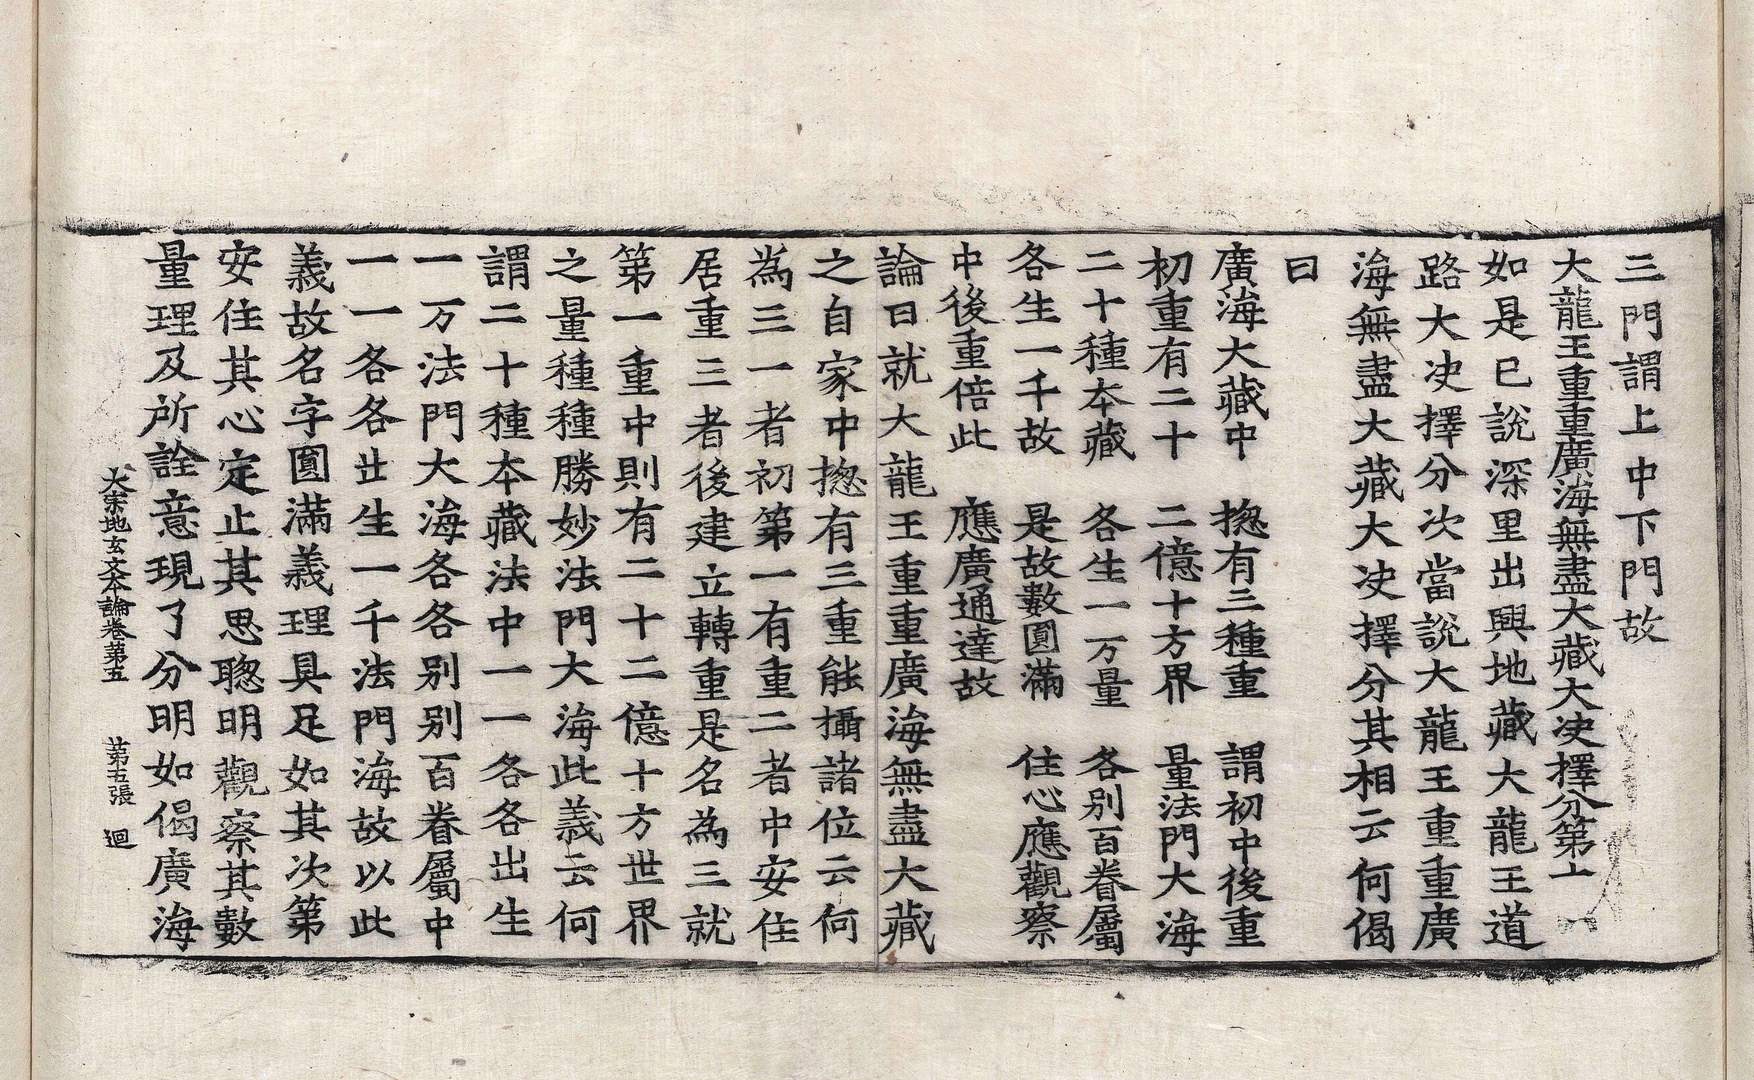 三門謂上中下門故
大龍王重重廣海無盡大藏大决擇分第上
如是已說深里出興地藏大龍王道
路大决擇分次當說大龍王重重廣
海無盡大藏大决擇分其相云何偈
曰
廣海大藏中　揔有三種重　謂初中後重
初重有二十　二億十方界　量法門大海
二十種本藏　各生一万量　各別百眷屬
各生一千故　是故數圓滿　住心應觀察
中後重倍此　應廣通達故
論曰就大龍王重重廣海無盡大藏
之自家中揔有三重能攝諸位云何
為三一者初第一有重二者中安住
居重三者後建立轉重是名為三就
第一重中則有二十二億十方世界
之量種種勝妙法門大海此義云何
謂二十種本藏法中一一各各出生
一万法門大海各各別別百眷屬中
一一各各出生一千法門海故以此
義故名字圓滿義理具足如其次第
安住其心定止其思聦明觀察其數
量理及所詮意現了分明如偈廣海
大宗地玄文本論卷第五　第五張　迴